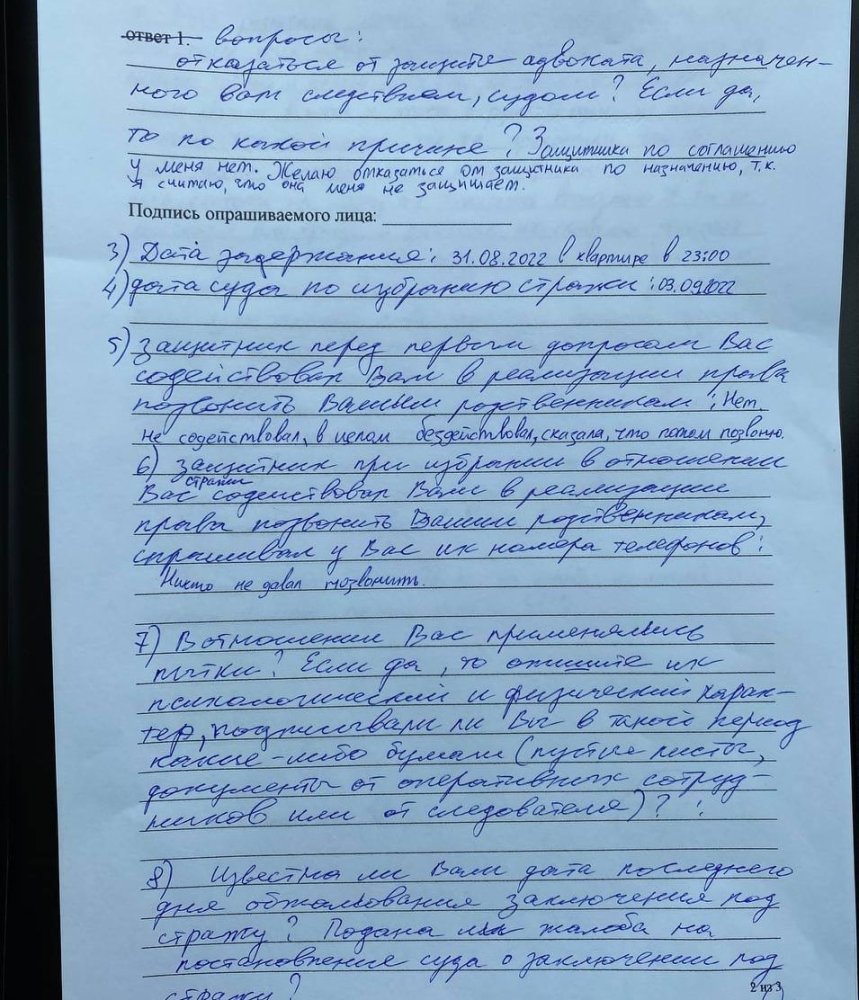 ответ 1. вопросы:
отказаться от защиты адвоката, назначен-
ного вам следствием, судом? Если да,
то по какой причине? Защитника по соглашению
у меня нет. Желаю отказаться от защитника по назначению, т.к.
я считаю, что она меня не защищает.
Подпись опрашиваемого лица:
3) Дата задержания: 31.08.2022 в квартире в 23:00
4) дата суда по избранию стражи: 03.09.2022
5) защитник перед первым допросом Вас
содействовал Вам в реализации права
позвонить Вашим родственникам: Нет.
не содействовал, в целом бездействовал, сказала, что потом позвоню.
6) защитник при избрании в отношении
Вас стражи содействовал Вам в реализации
права позвонить Вашим родственникам,
спрашивал у Вас их номера телефонов:
Никто не давал позвонить.
7) В отношении Вас применялись
пытки? Если да, то опишите их
психологический и физический харак-
тер, подписывали ли Вы в такой период
какие-либо бумаги (пустые листы,
документы от оперативных сотруд-
ников или от следователя)? :
8) Известна ли Вам дата последнего
дня обжалования заключения под
стражу? Подана ли жалоба на
постановление суда о заключении под
стражу?
2 из 3